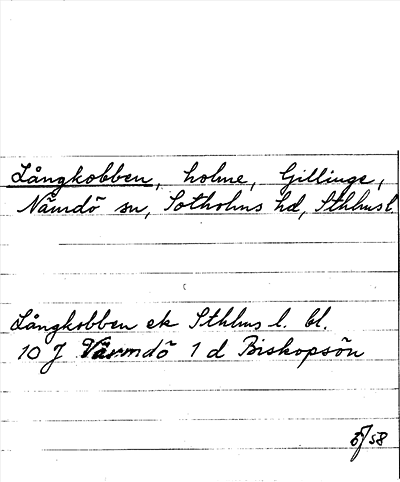 Långkobben, holme, Gillinge,
Nämdö sn, Sotholms hd, Sthlms l.
Långkobben ek Sthlms l. bl.
10 J Värmdö 1 d Biskopsön
5/58